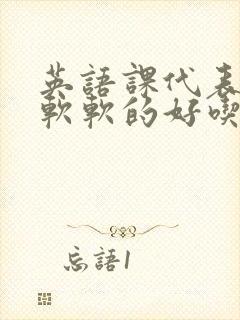 英語課代表
軟軟的好喫
忘語1